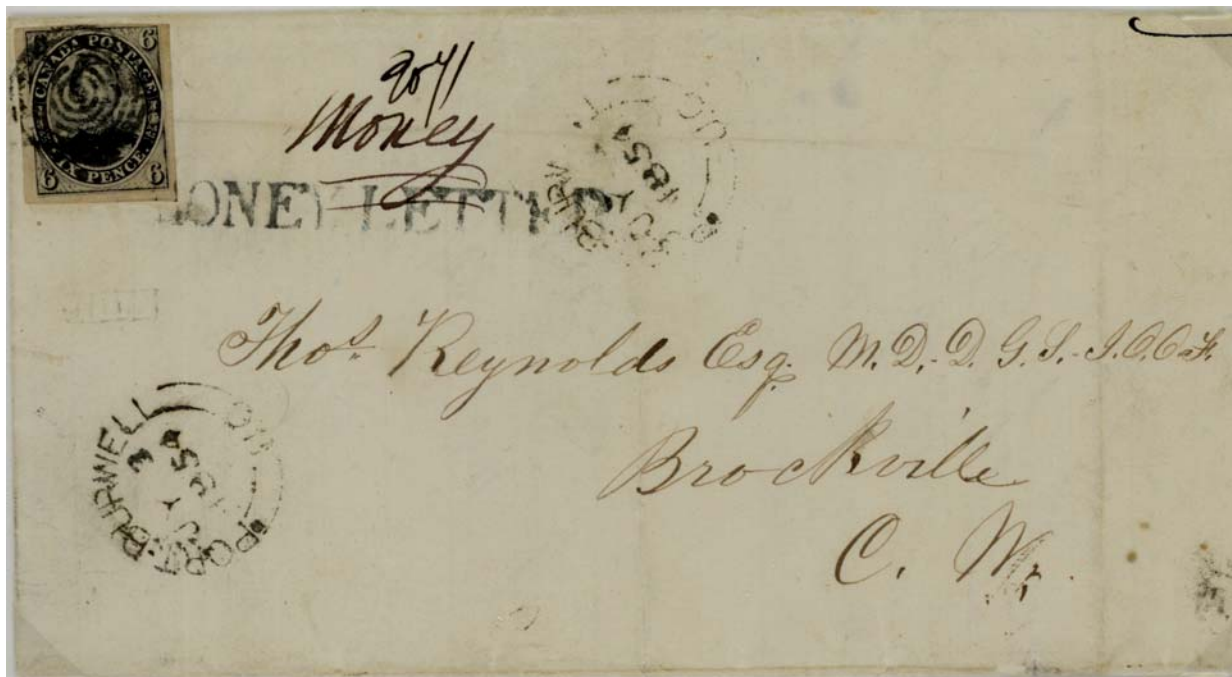 6 CANADA POSTAGE 6
SIX PENCE
6 6
2071
Money
MONEY LETTER
U.C.
185
Thos. Reynolds Esq. M.D. D.G.S. I.O.O.F.
Brockville
C. W.
PORT-BURWELL
U.C.
3
185